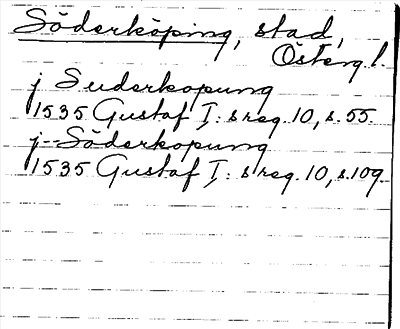 Söderköping, stad,
Österg l.
j Suderkopung
1535 Gustaf I: s reg. 10, s. 55.
j -- Söderkopung
1535 Gustaf I: s reg. 10, s. 109.